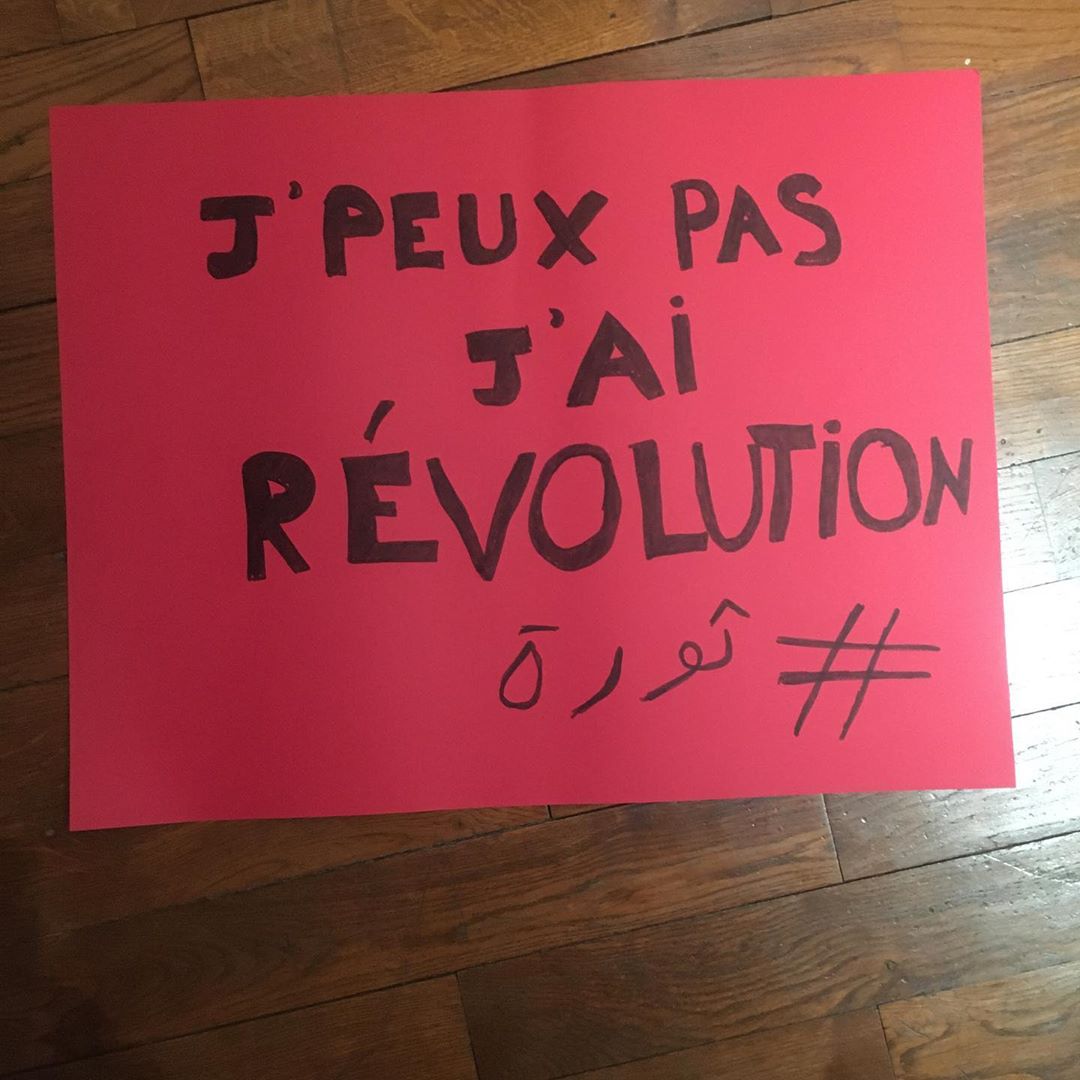 J'PEUX PAS
J'Ai
RÉVOLUTiON
#ثورة